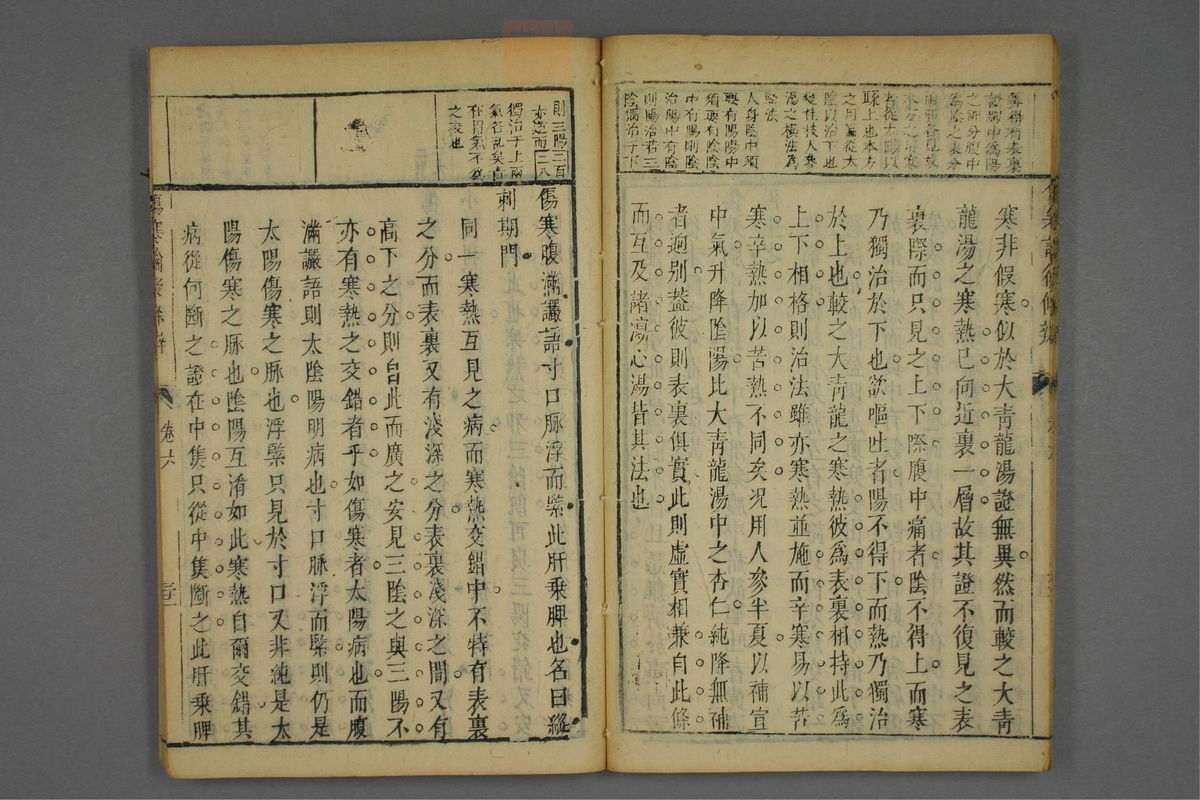 寒非假寒似於大青龍湯證無異然而較之大青
龍湯之寒熱已向近裏一層故其證不復見之表
裏際而只見之上下際腹中痛者陰不得上而寒
乃獨治於下也欲嘔吐者陽不得下而熱乃獨治
於上也較之大青龍之寒熱彼為表裏相持此為
上下相格則治法雖亦寒熱並施而辛寒易以苦
寒辛熱加以苦熱不同矣况用人參半夏以補宣
中氣升降陰陽比大青龍湯中之杏仁純降無補
者逈别葢彼則表裏俱實此則虛實相兼自此條
而互及諸瀉心湯皆其法也
陰以治下也
桂枝人參
湯之橫法為
竪法
人身陰中須
要有陽陽中
須要有陰陰
中有陽則陰
治陽中有陰
則陽治若三
陰獨治于下
則三陽
亦逆而
獨治于上兩
在胃氣不為
之主也
三百
二八
傷寒腹滿讝語寸口脉浮而緊此肝乗脾也名曰縱
刺期門
同一寒熱互見之病而寒熱交錯中不特有表裏
之分而表裏又有淺深之分表裏淺深之間又有
高下之分則自此而廣之安見三陰之與三陽不
亦有寒熱之交錯者乎如傷寒者太陽病也而腹
滿讝語則太陰陽明病也寸口脉浮而緊則仍是
太陽傷寒之脉也浮緊只見於寸口又非純是太
陽傷寒之脉也陰陽互淆如此寒熱自爾交錯其
病從何斷之證在中焦只從中焦斷之此肝乗脾
傷寒論後條辨
卷六